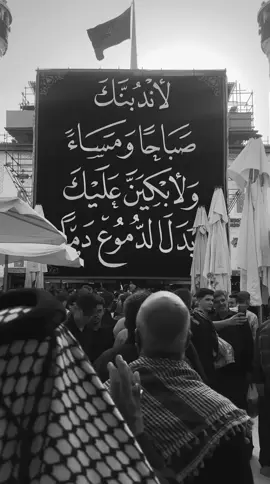 لَأَنْدُبَنَّكَ
صَبَاحًا وَمَسَاءً
وَلَأَبْكِيَنَّ عَلَيْكَ
بَدَلَ الدُّمُوعِ دَمًا